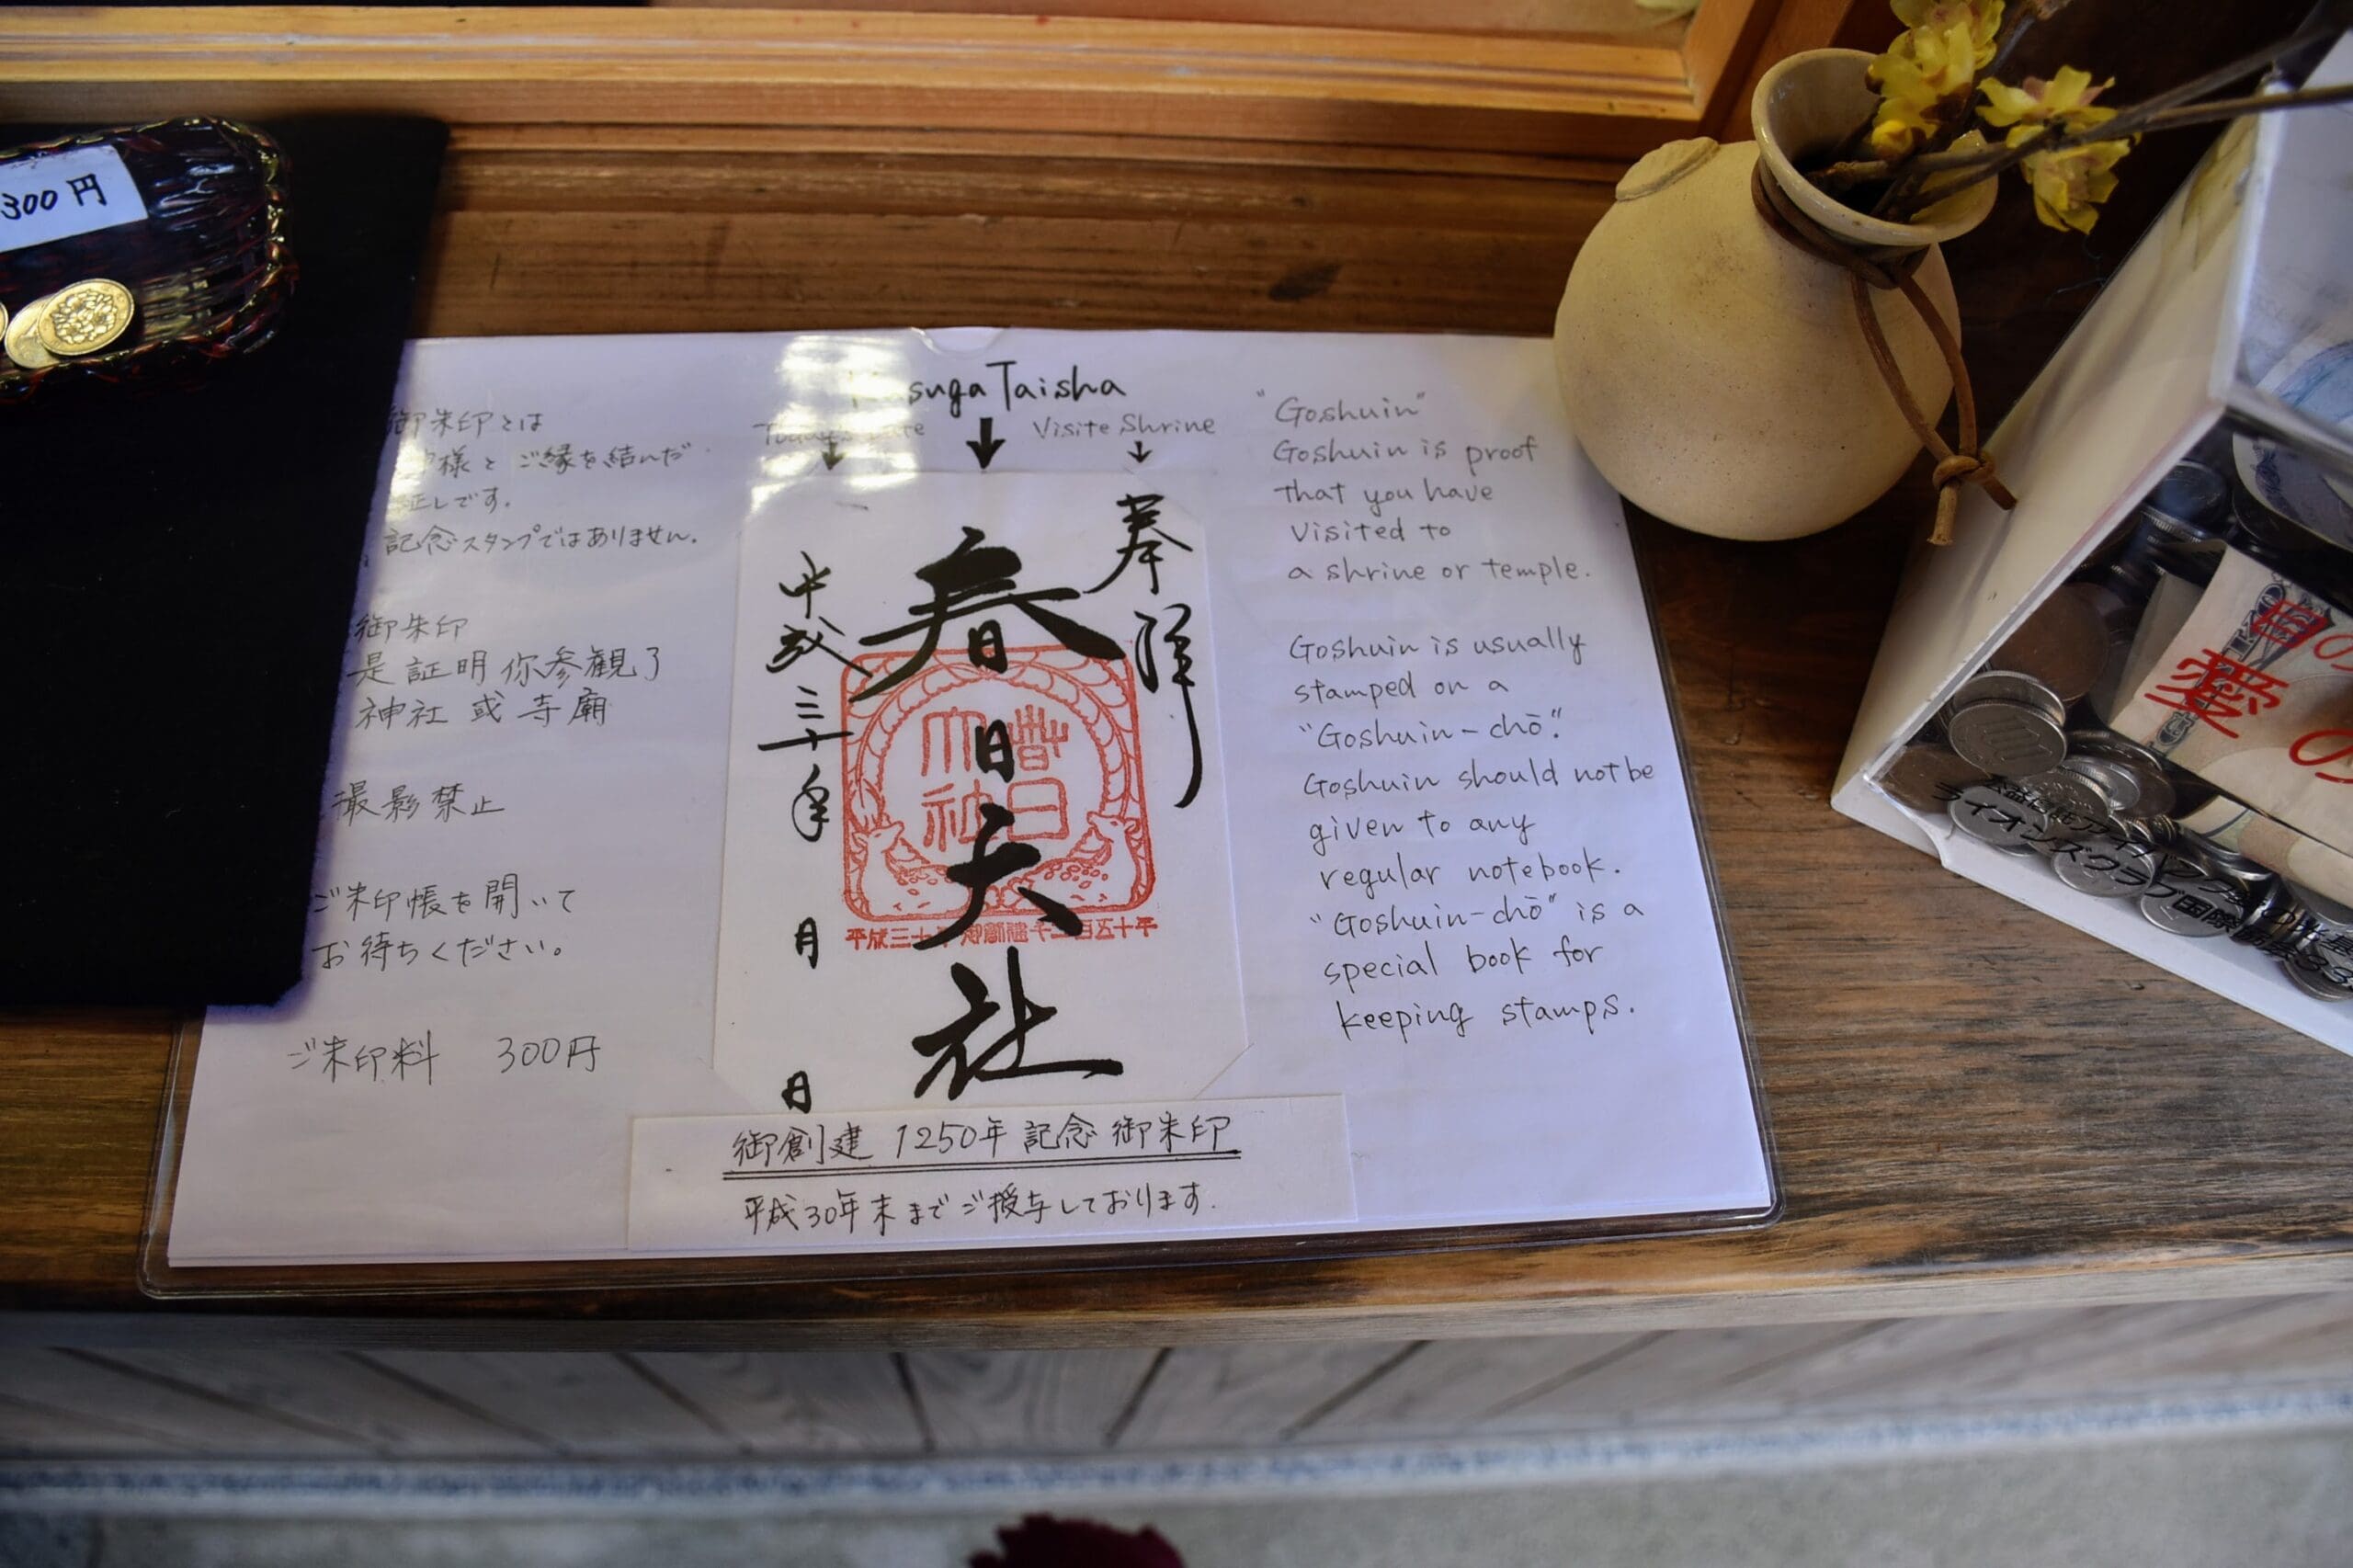 300円
御朱印とは
様とご縁を結んだ
証しです。
記念スタンプではありません。
御朱印
是証明你参観了
神社或寺廟
撮影禁止
ご朱印帳を開いて
お待ちください。
ご朱印料 300円
suga Taisha
Today's Date
Visite Shrine
奉拝
春日大社
平成三十年
月
日
春日
大社
平成三十年 御創建千二百五十年
御創建 1250年 記念 御朱印
平成30年末までご授与しております.
"Goshuin"
Goshuin is proof
that you have
visited to
a shrine or temple.
Goshuin is usually
stamped on a
"Goshuin-chō".
Goshuin should not be
given to any
regular notebook.
"Goshuin-chō" is a
special book for
keeping stamps.
目の
愛の
ライオンズクラブ国際